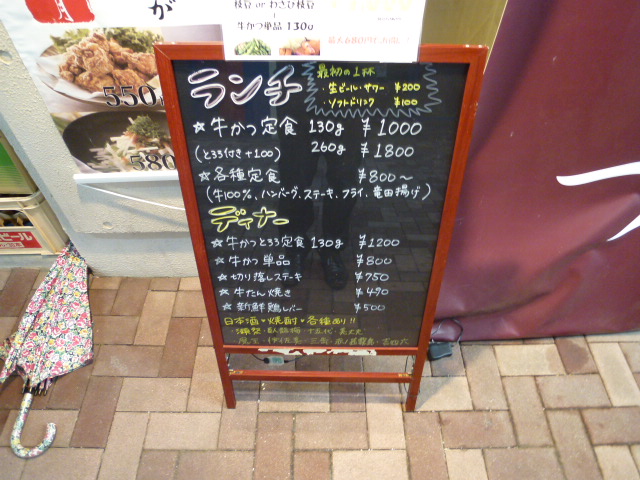 が
枝豆 or わさび枝豆
牛かつ単品 130g
550
580
ランチ
最初の1杯
・生ビール・サワー ¥200
・ソフトドリンク ¥100
☆牛かつ定食 130g ¥1000
(とろろ付き+100) 260g ¥1800
☆各種定食 ¥800〜
(牛100%、ハンバーグ、ステーキ、フライ、竜田揚げ)
ディナー
☆牛かつとろろ定食 130g ¥1200
☆牛かつ単品 ¥800
☆切り落しステーキ ¥750
☆牛たん焼き ¥490
☆新鮮鶏レバー ¥500
日本酒・焼酎・各種あり!!
ビール